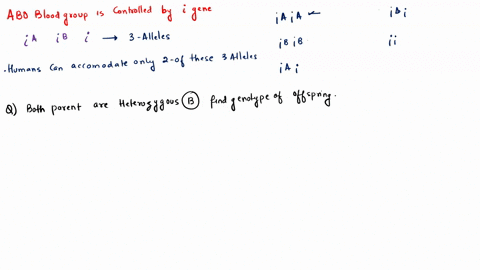 ABO Blood group is Controlled by i gene
iA iB i → 3-Alleles
·Humans Can accomodate only 2-of these 3 Alleles
iA iA
iB iB
iA i
iB i
ii
Q) Both parent are Heterozygous B find genotype of offspring.